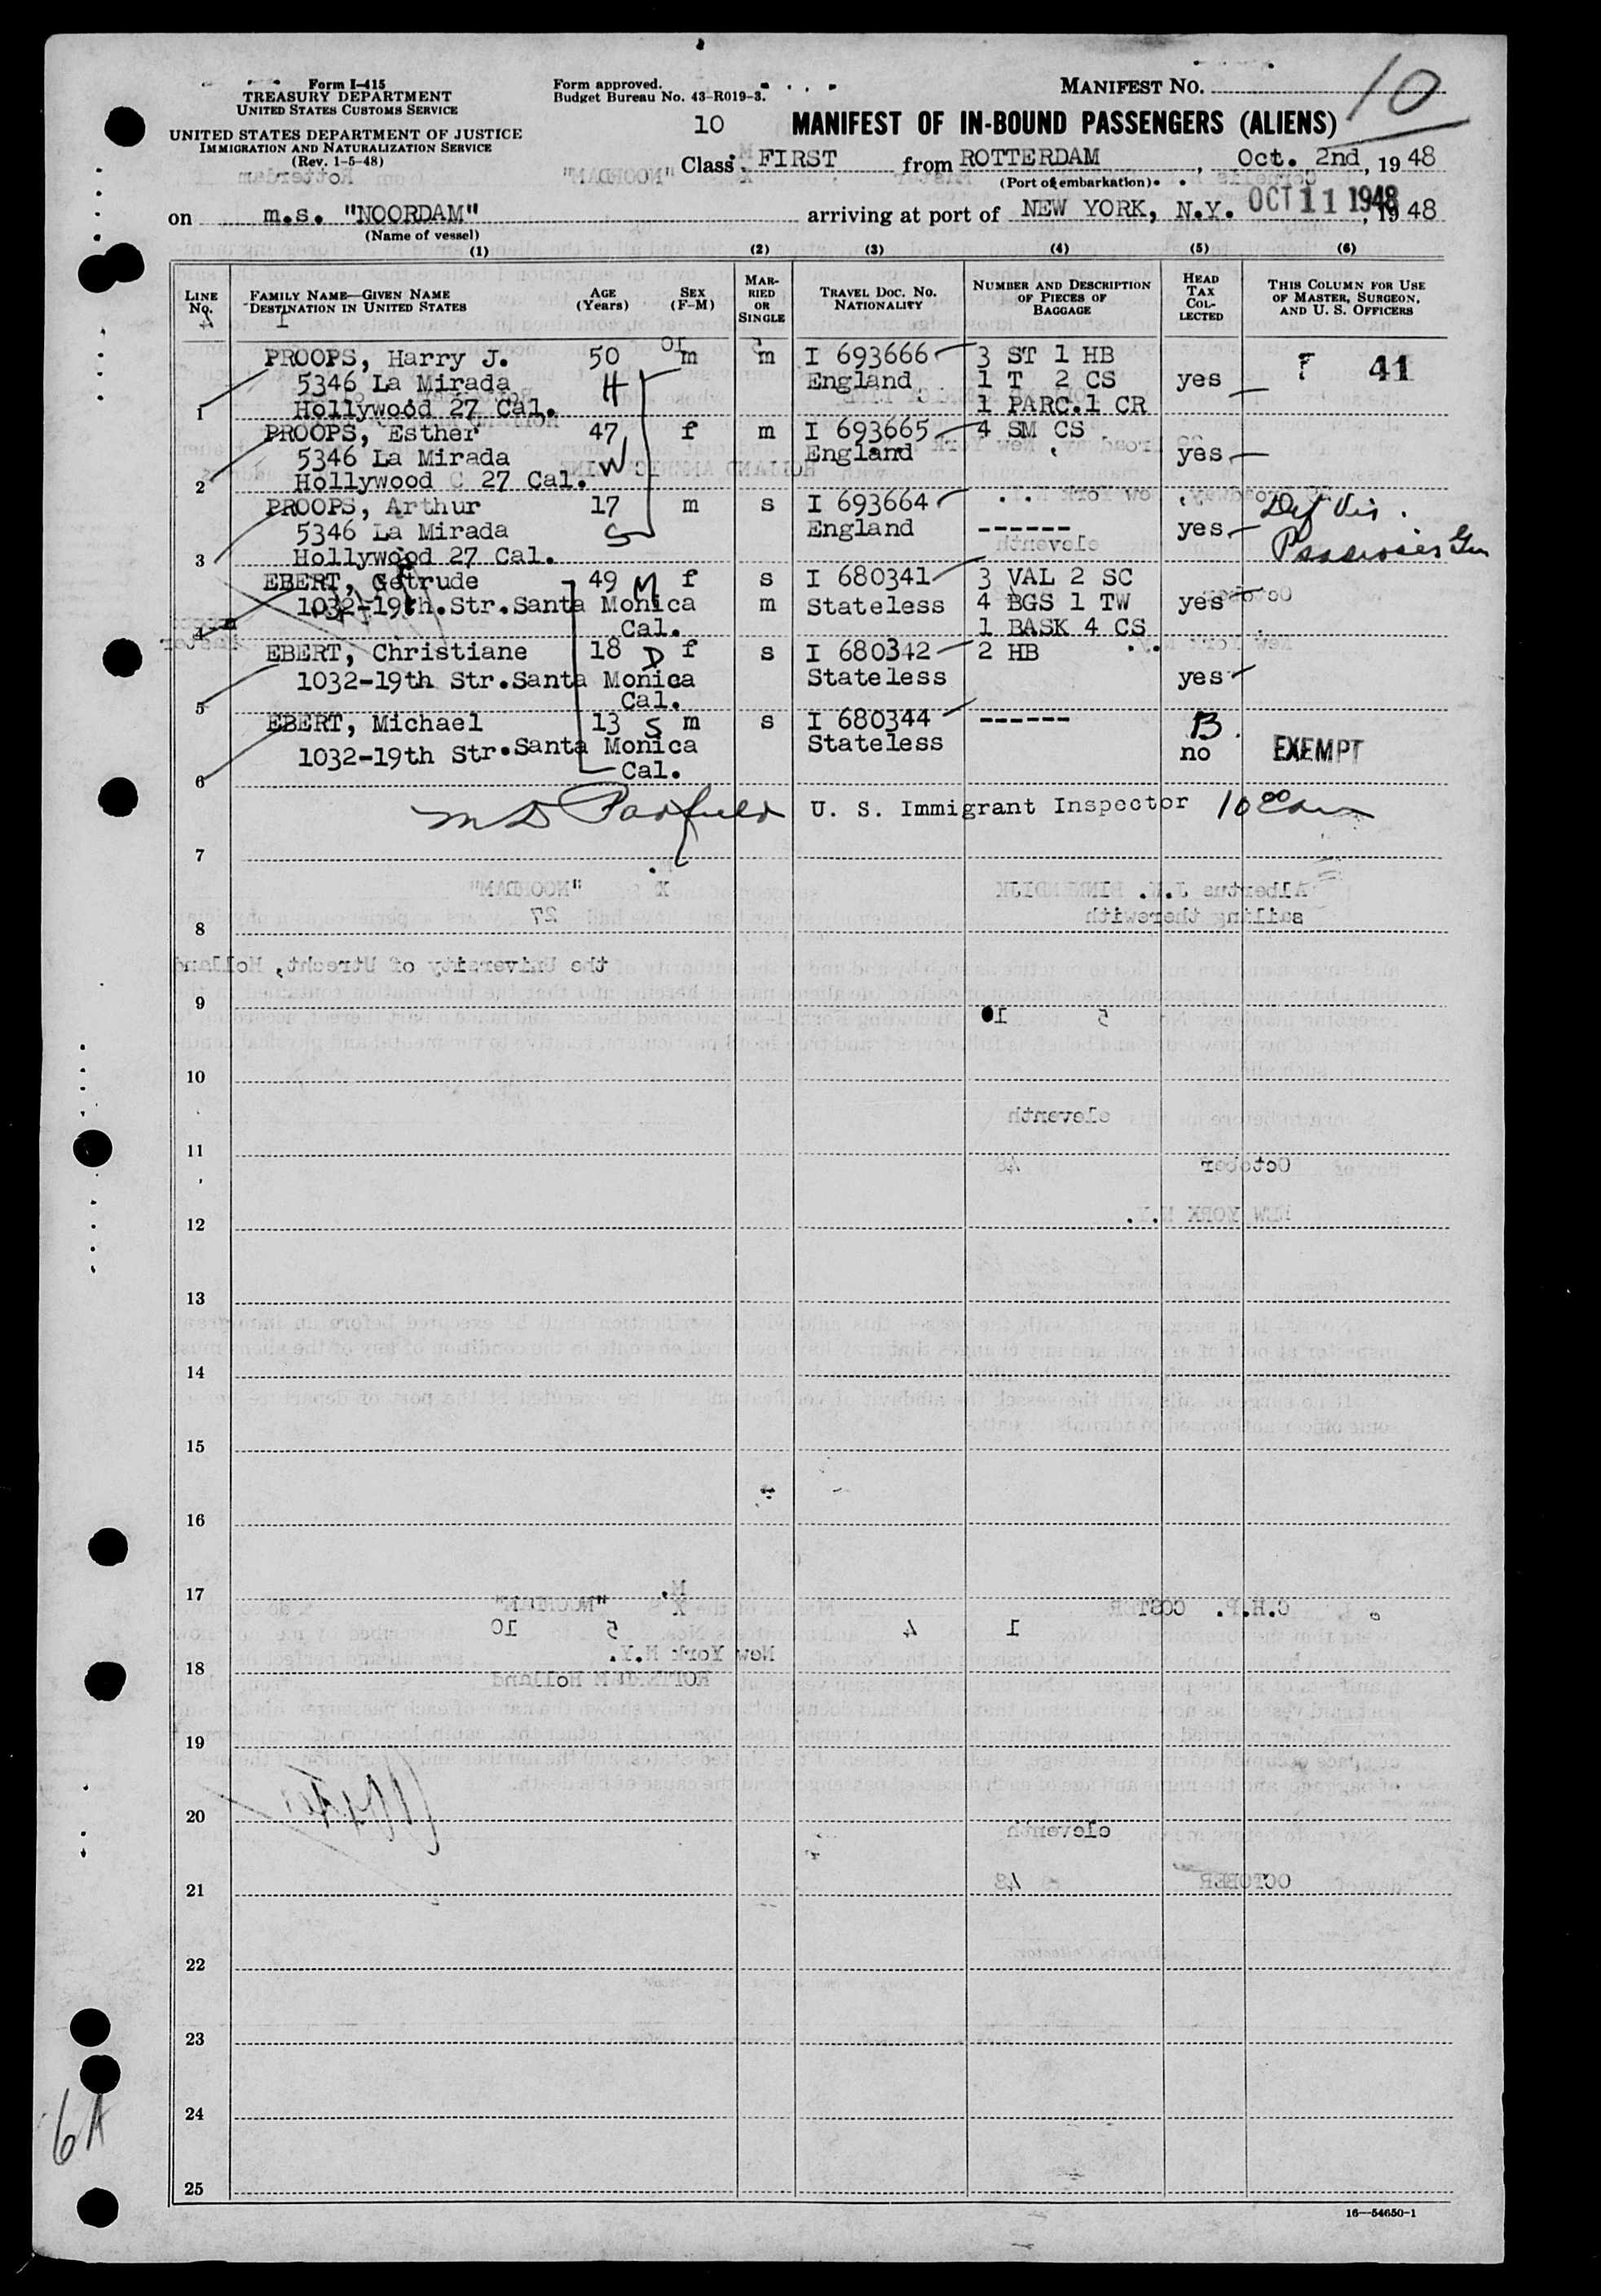 Form I-415
TREASURY DEPARTMENT
UNITED STATES CUSTOMS SERVICE
UNITED STATES DEPARTMENT OF JUSTICE
IMMIGRATION AND NATURALIZATION SERVICE
(Rev. 1-5-48)
Form approved.
Budget Bureau No. 43-R019-3.
MANIFEST NO. 10
10 MANIFEST OF IN-BOUND PASSENGERS (ALIENS)
Class FIRST from ROTTERDAM, Oct. 2nd, 1948
(Port of embarkation)
on m.s. "NOORDAM" arriving at port of NEW YORK, N.Y. OCT 11 1948, 1948
(Name of vessel)
(1) (2) (3) (4) (5) (6)
LINE No. FAMILY NAME—GIVEN NAME DESTINATION IN UNITED STATES AGE (Years) SEX (F-M) MARRIED OR SINGLE TRAVEL DOC. NO. NATIONALITY NUMBER AND DESCRIPTION OF PIECES OF BAGGAGE HEAD TAX COLLECTED THIS COLUMN FOR USE OF MASTER, SURGEON, AND U. S. OFFICERS
PROOPS, Harry J. 50 m m I 693666 3 ST 1 HB
5346 La Mirada H England 1 T 2 CS yes 41
1 Hollywood 27 Cal. 1 PARC.1 CR
PROOPS, Esther 47 f m I 693665 4 SM CS
5346 La Mirada W England yes
2 Hollywood C 27 Cal.
PROOPS, Arthur 17 m s I 693664
5346 La Mirada S England ------ yes
3 Hollywood 27 Cal.
EBERT, Getrude 49 M f s I 680341 3 VAL 2 SC
1032-19th.Str.Santa Monica m Stateless 4 BGS 1 TW yes
4 Cal. 1 BASK 4 CS
EBERT, Christiane 18 D f s I 680342 2 HB
1032-19th Str.Santa Monica Stateless yes
5 Cal.
EBERT, Michael 13 S m s I 680344 ------ B.
1032-19th Str.Santa Monica Stateless no EXEMPT
6 Cal.
M D Padfield U. S. Immigrant Inspector
7
8
9
10
11
12
13
14
15
16
17
18
19
20
21
22
23
24
25
6A
16—54650-1